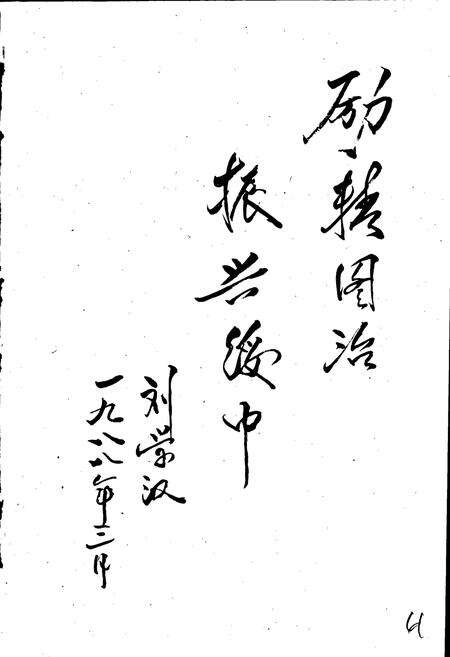 励精图治
振兴绥中
刘学汉
一九八八年三月